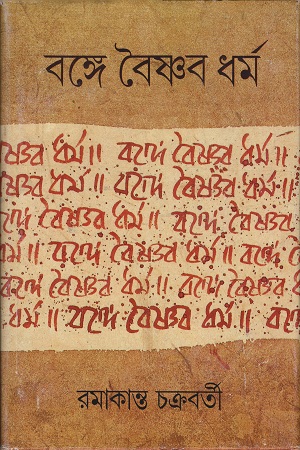 বঙ্গে বৈষ্ণব ধর্ম
বৈষ্ণব ধর্ম॥ বঙ্গে বৈষ্ণব ধর্ম॥
বৈষ্ণব ধর্ম॥ বঙ্গে বৈষ্ণব ধর্ম॥
বঙ্গে বৈষ্ণব ধর্ম॥ বঙ্গে বৈষ্ণব
ধর্ম॥ বঙ্গে বৈষ্ণব ধর্ম॥ বঙ্গে বৈ
বঙ্গে বৈষ্ণব ধর্ম॥ বঙ্গে বৈষ্ণব
ধর্ম॥ বঙ্গে বৈষ্ণব ধর্ম॥ বঙ্গে
রমাকান্ত চক্রবর্তী